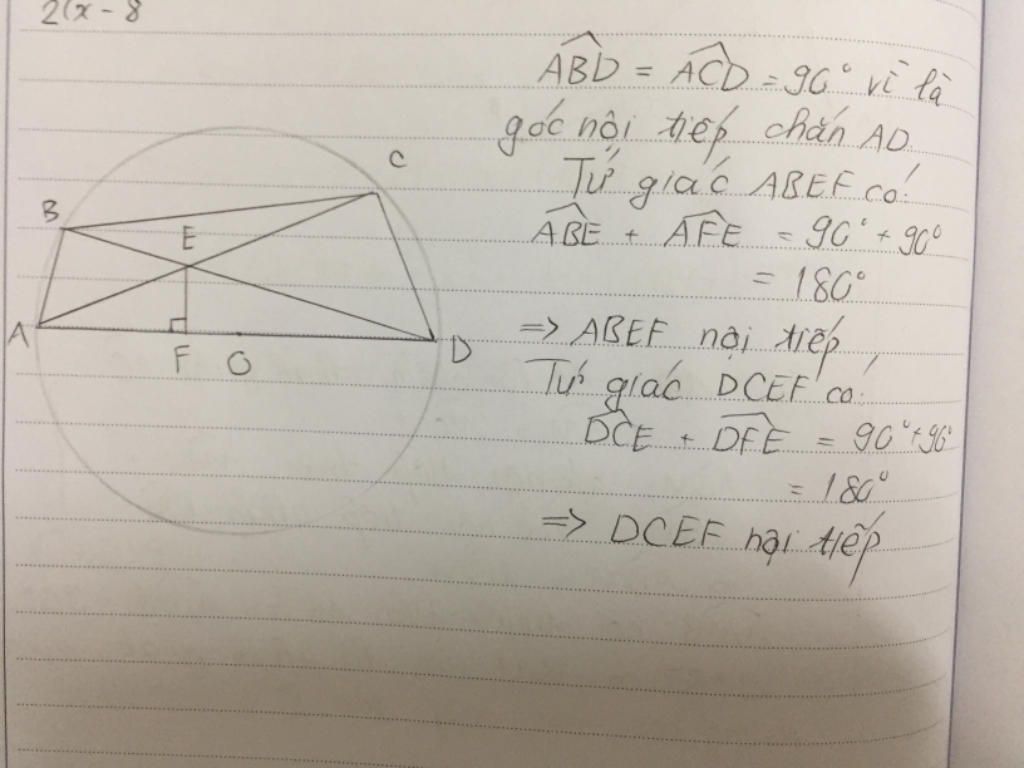 2(x - 8
ABD = ACD = 90° vì là
góc nội tiếp chắn AD
Tứ giác ABEF có:
ABE + AFE = 90° + 90°
= 180°
=> ABEF nội tiếp
Tứ giác DCEF có:
DCE + DFE = 90° + 90°
= 180°
=> DCEF nội tiếp
C
B
E
A
F O
D